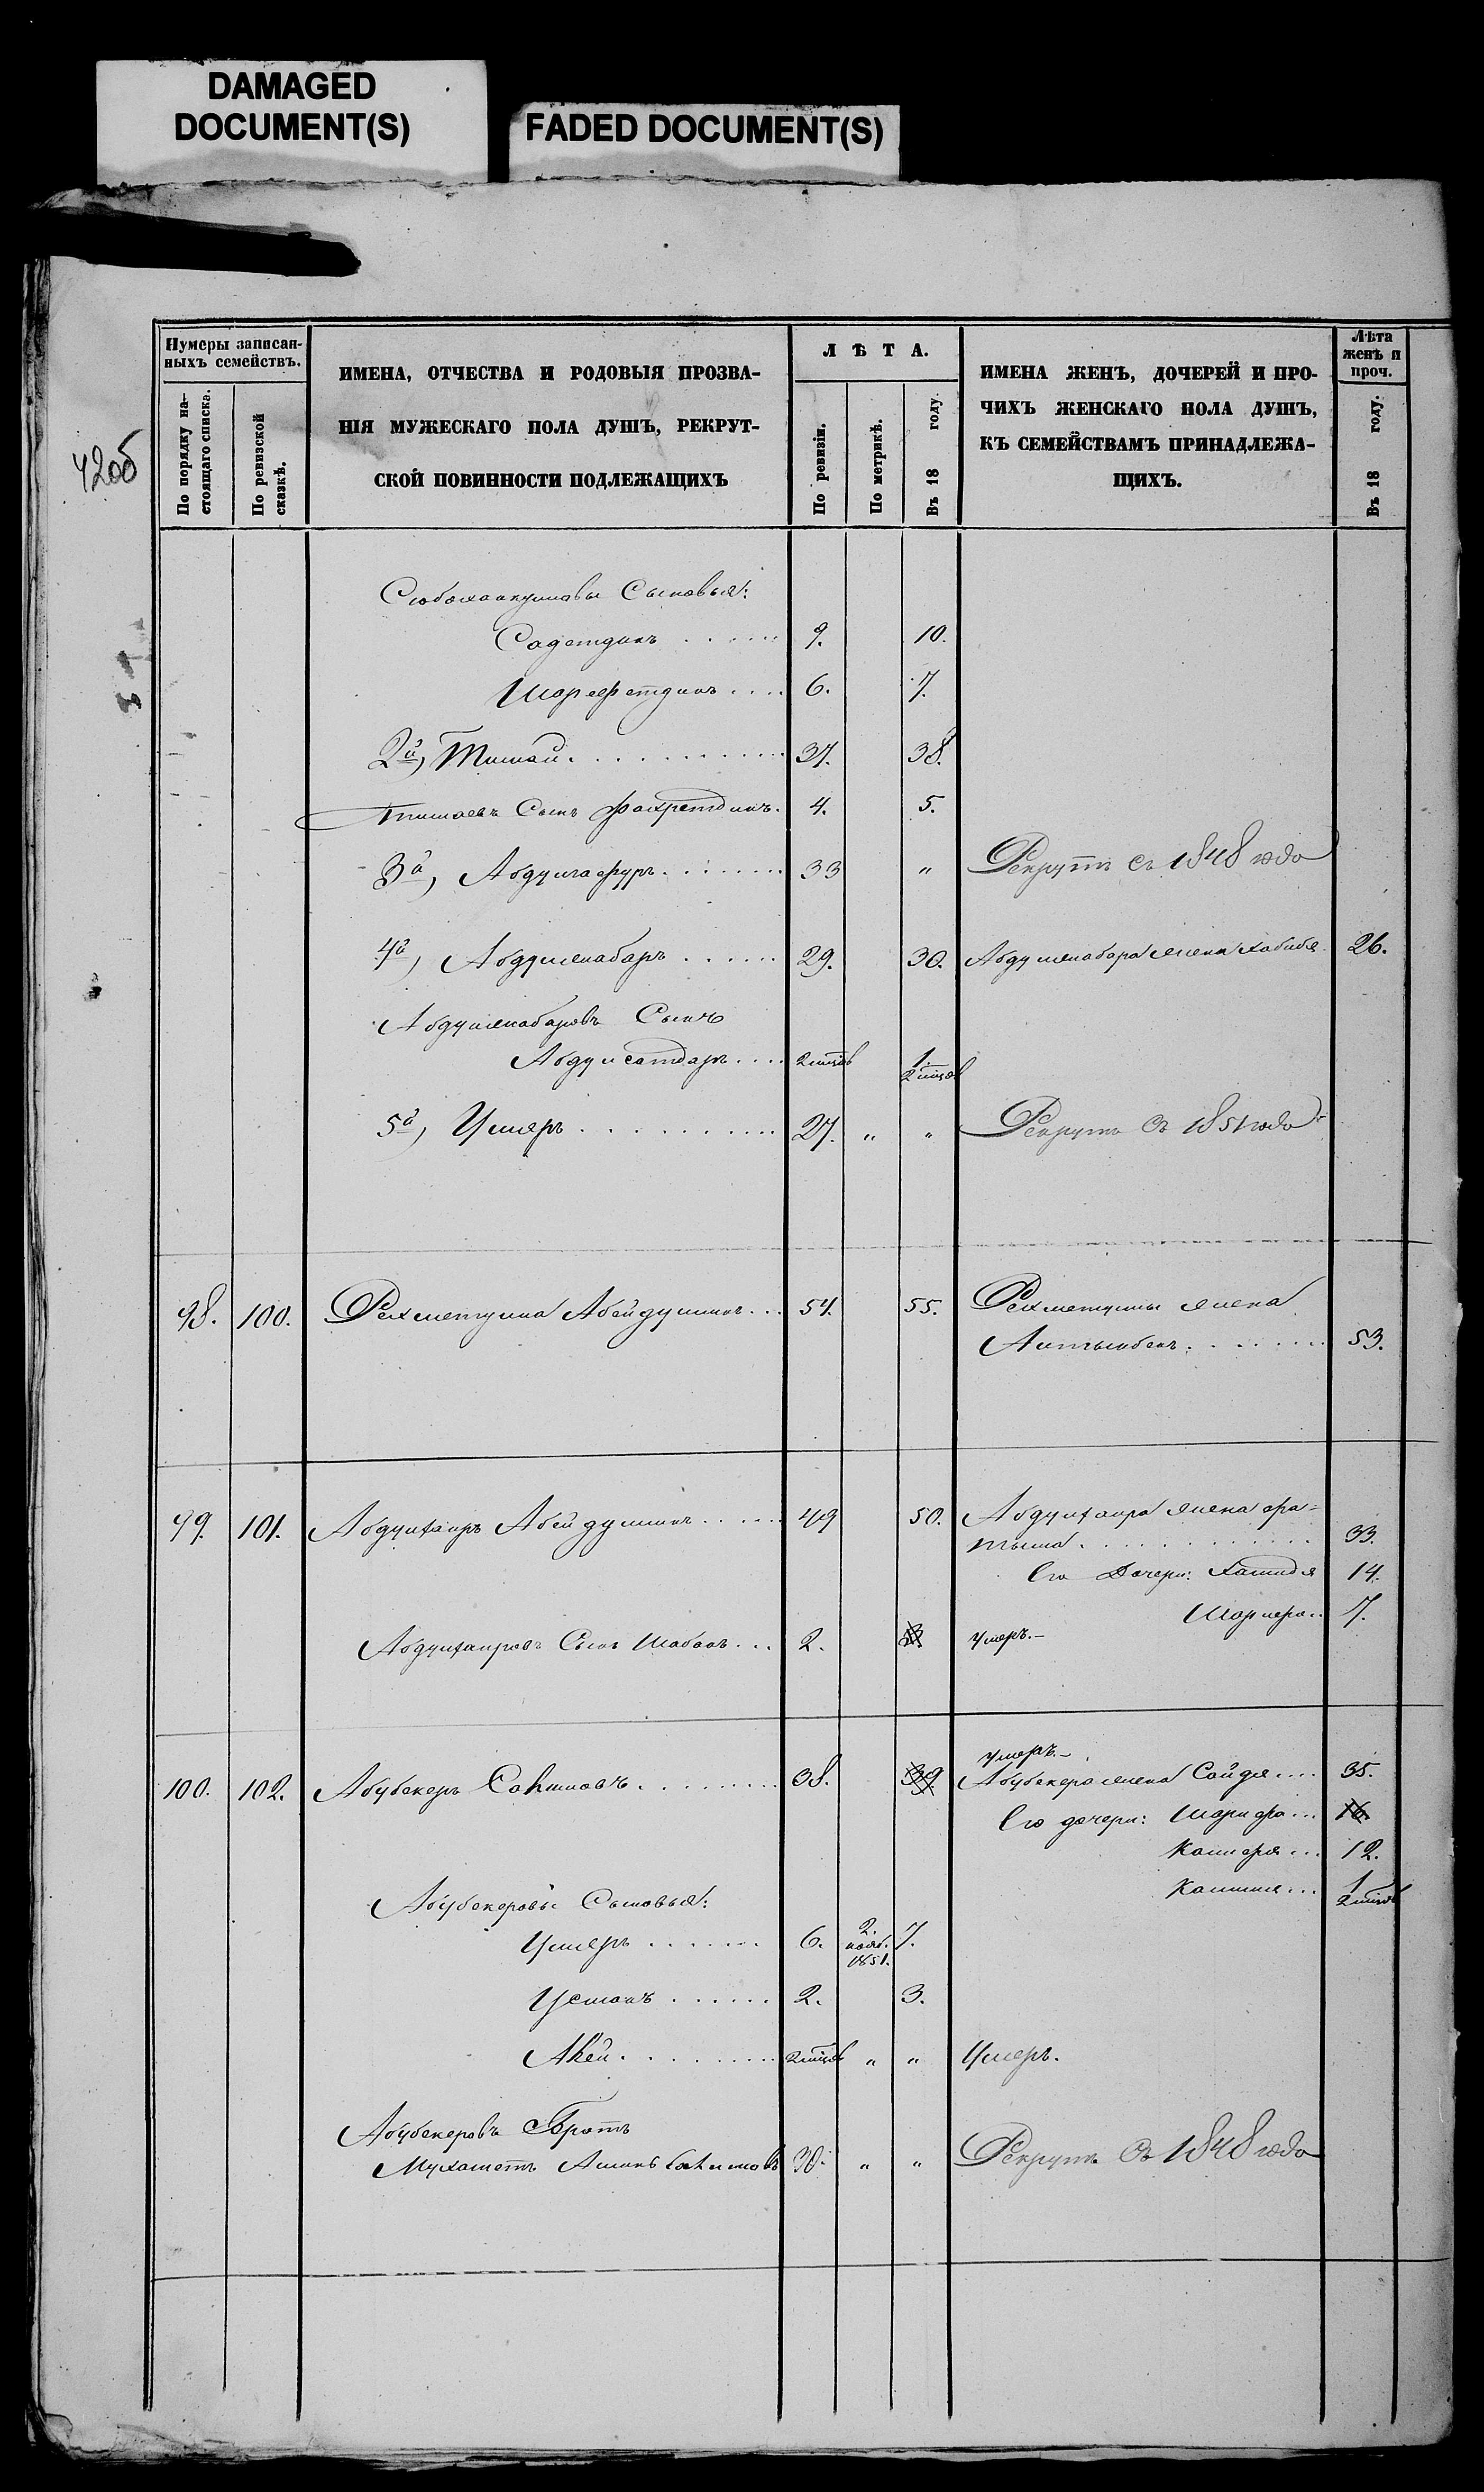 DAMAGED
DOCUMENT(S)
FADED DOCUMENT(S)
420об
Нумеры записан-
ныхъ семействъ.
По порядку на-
стоящаго списка.
По ревизской
сказкѣ.
ИМЕНА, ОТЧЕСТВА И РОДОВЫЯ ПРОЗВА-
НІЯ МУЖЕСКАГО ПОЛА ДУШЪ, РЕКРУТ-
СКОЙ ПОВИННОСТИ ПОДЛЕЖАЩИХЪ
ЛѢТА.
По ревизіи.
По метрикѣ.
Въ 18 году.
ИМЕНА ЖЕНЪ, ДОЧЕРЕЙ И ПРО-
ЧИХЪ ЖЕНСКАГО ПОЛА ДУШЪ,
КЪ СЕМЕЙСТВАМЪ ПРИНАДЛЕЖА-
ЩИХЪ.
Лѣта
женъ и
проч.
Въ 18 году.
Сыновья:
Садетдинъ 9. 10.
Шарефетдинъ 6. 7.
2й, Тимай 37. 38.
Тимаевъ Сынъ Фахретдинъ 4. 5.
3й, Абдулгафуръ 33 " Рекрутъ съ 1848 года
4й, Абдулжабаръ 29. 30. Абдулжабара жена Хабибя 26.
Абдулжабаровъ Сынъ
Абдулсатдаръ 2 мцов 1. 2 мцов
5й, Умеръ 27. " " Рекрутъ съ 1851 года
98. 100. Рехметулла Абейдуллинъ 54. 55. Рехметуллы жена
Алтынбека 53.
99. 101. Абдулхаиръ Абейдуллинъ 49 50. Абдулхаира жена Фа-
тыма 33.
Его Дочери: Хамидя 14.
7.
Абдулхаировъ Сынъ Шабанъ 2. 3 умеръ.-
умеръ.-
100. 102. Абубекеръ Сакимовъ 38. 39 Абубекера жена Сайдя 35.
Его дочери: Шарифа 16.
12.
1 2 мцов
Абубекеровы Сыновья:
Умеръ 6. 2. нояб. 1851. 7.
Усманъ 2. 3.
Акей 2 мцов " " Умеръ.
Абубекеровъ Братъ
Мухаметъ Аминъ Сакимовъ 30. " " Рекрутъ съ 1848 года